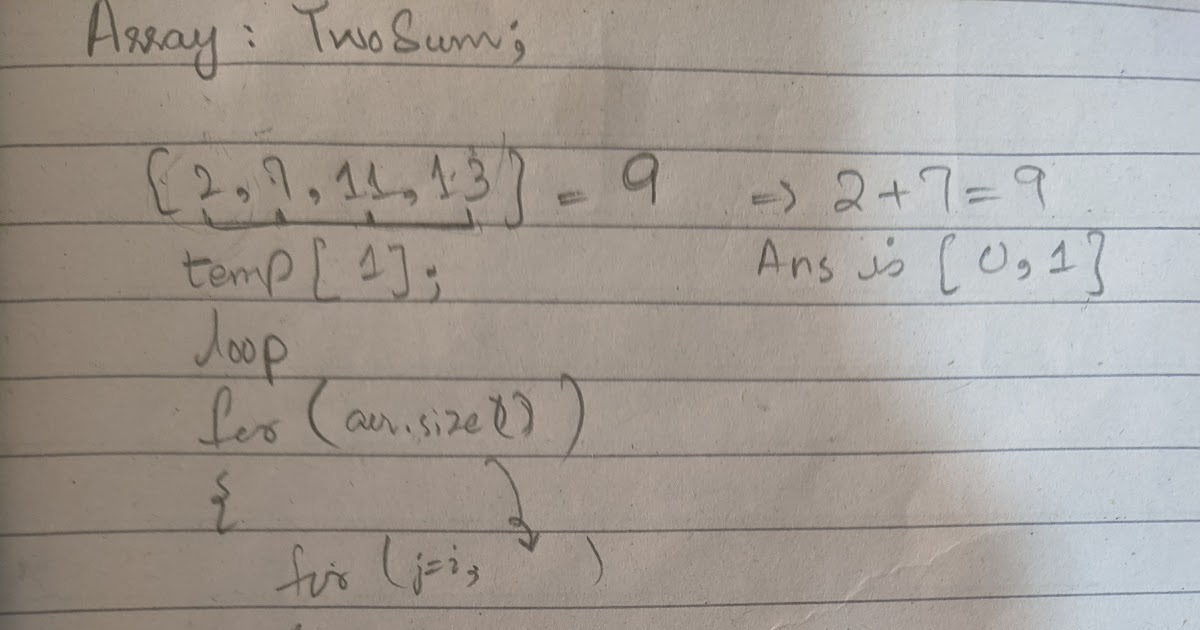 Array: TwoSum;
[2, 7, 11, 13] = 9 => 2+7=9
temp[1]; Ans is [0,1]
loop
for (arr.size())
{
for (j=i, )